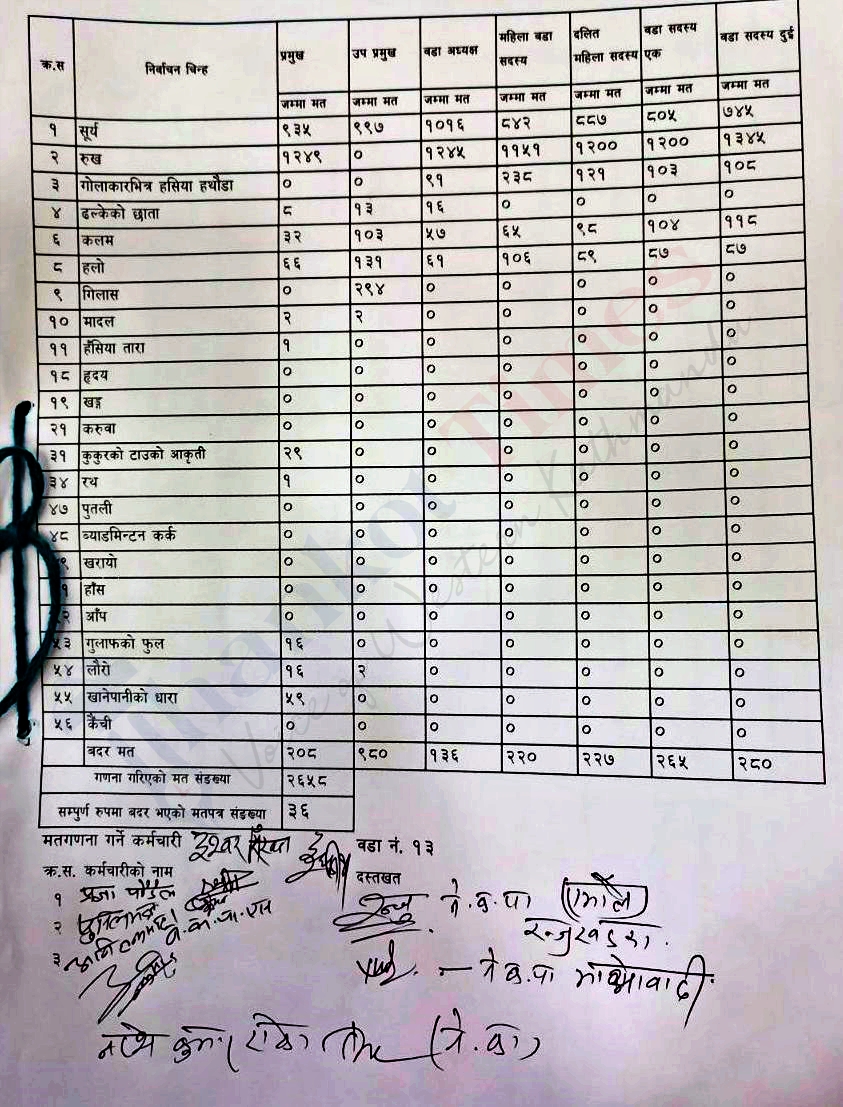 क्र.स निर्वाचन चिन्ह प्रमुख उप प्रमुख वडा अध्यक्ष महिला वडा सदस्य दलित महिला सदस्य वडा सदस्य एक वडा सदस्य दुई
जम्मा मत जम्मा मत जम्मा मत जम्मा मत जम्मा मत जम्मा मत जम्मा मत
१ सूर्य ९३५ ९९७ १०१६ ८४२ ८८७ ८०५ ७४५
२ रुख १२४९ ० १२४५ ११५१ १२०० १२०० १३४५
३ गोलाकारभित्र हसिया हथौडा ० ० ९१ २३८ १२१ १०३ १०८
४ ढल्केको छाता ८ १३ १६ ० ० ० ०
६ कलम ३२ १०३ ५७ ६५ ९८ १०४ ११८
८ हलो ६६ १३१ ६१ १०६ ८९ ८७ ८७
९ गिलास ० २९४ ० ० ० ० ०
१० मादल २ २ ० ० ० ० ०
११ हँसिया तारा १ ० ० ० ० ० ०
१८ हृदय ० ० ० ० ० ० ०
१९ खड्ग ० ० ० ० ० ० ०
२१ करुवा ० ० ० ० ० ० ०
३१ कुकुरको टाउको आकृती २९ ० ० ० ० ० ०
३४ रथ १ ० ० ० ० ० ०
४७ पुतली ० ० ० ० ० ० ०
४८ ब्याडमिन्टन कर्क ० ० ० ० ० ० ०
खरायो ० ० ० ० ० ० ०
हाँस ० ० ० ० ० ० ०
आँप ० ० ० ० ० ० ०
५३ गुलाफको फुल १६ ० ० ० ० ० ०
५४ लौरो १६ २ ० ० ० ० ०
५५ खानेपानीको धारा ५९ ० ० ० ० ० ०
५६ कैंची ० ० ० ० ० ० ०
बदर मत २०८ ९८० १३६ २२० २२७ २६५ २८०
गणना गरिएको मत संङख्या २६५८
सम्पुर्ण रुपमा बदर भएको मतपत्र संङख्या ३६
मतगणना गर्ने कर्मचारी वडा नं. १३
क्र.स. कर्मचारीको नाम दस्तखत
१ प्रजा पौडेल ने.क.पा एमाले
२ रन्जु खड्का
३ ने.क.पा माओवादी
(ने.का)
Times
Voice of Western Kathmandu